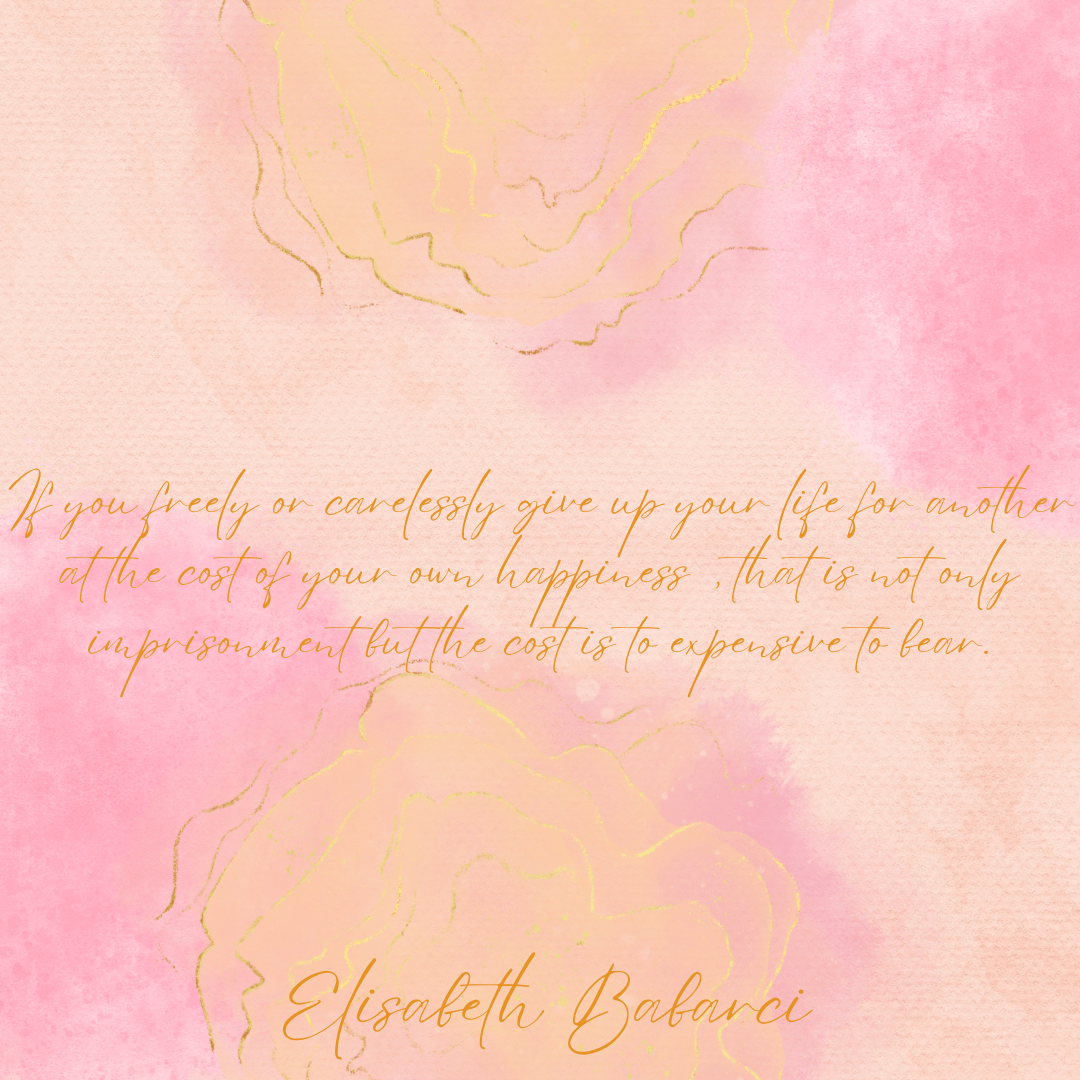 If you freely or carelessly give up your life for another
at the cost of your own happiness , that is not only
imprisonment but the cost is to expensive to bear.
Elisabeth Babarci